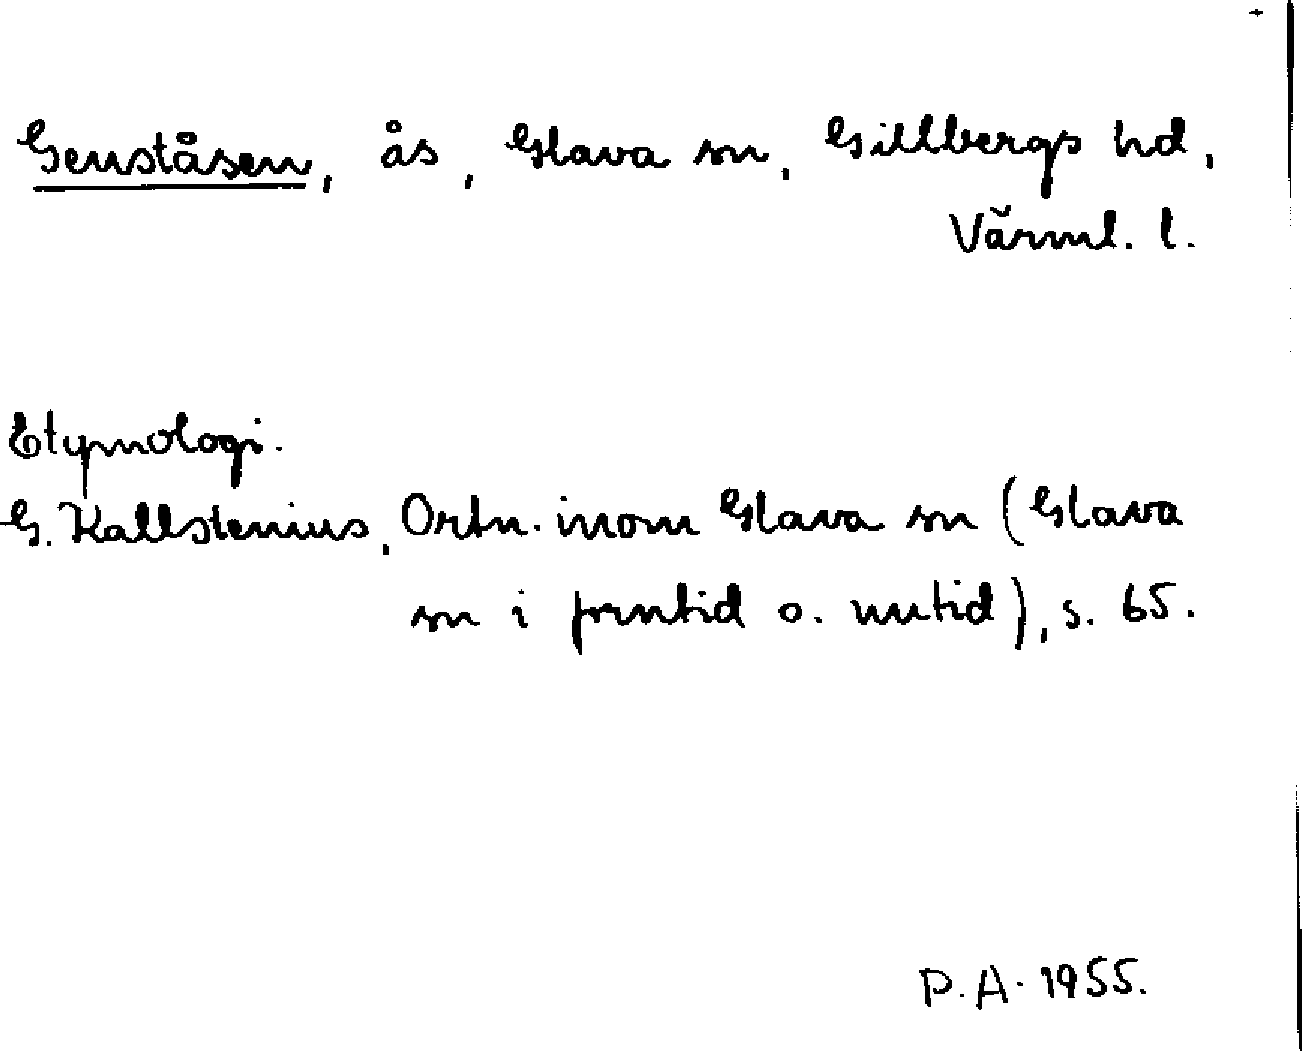 Genståsen, ås, Glava sn, Gillbergs hd,
Värml. l.
Etymologi.
G. Kallstenius, Ortn. inom Glava sn (Glava
sn i forntid o. nutid), s. 65.
P.A. 1955.